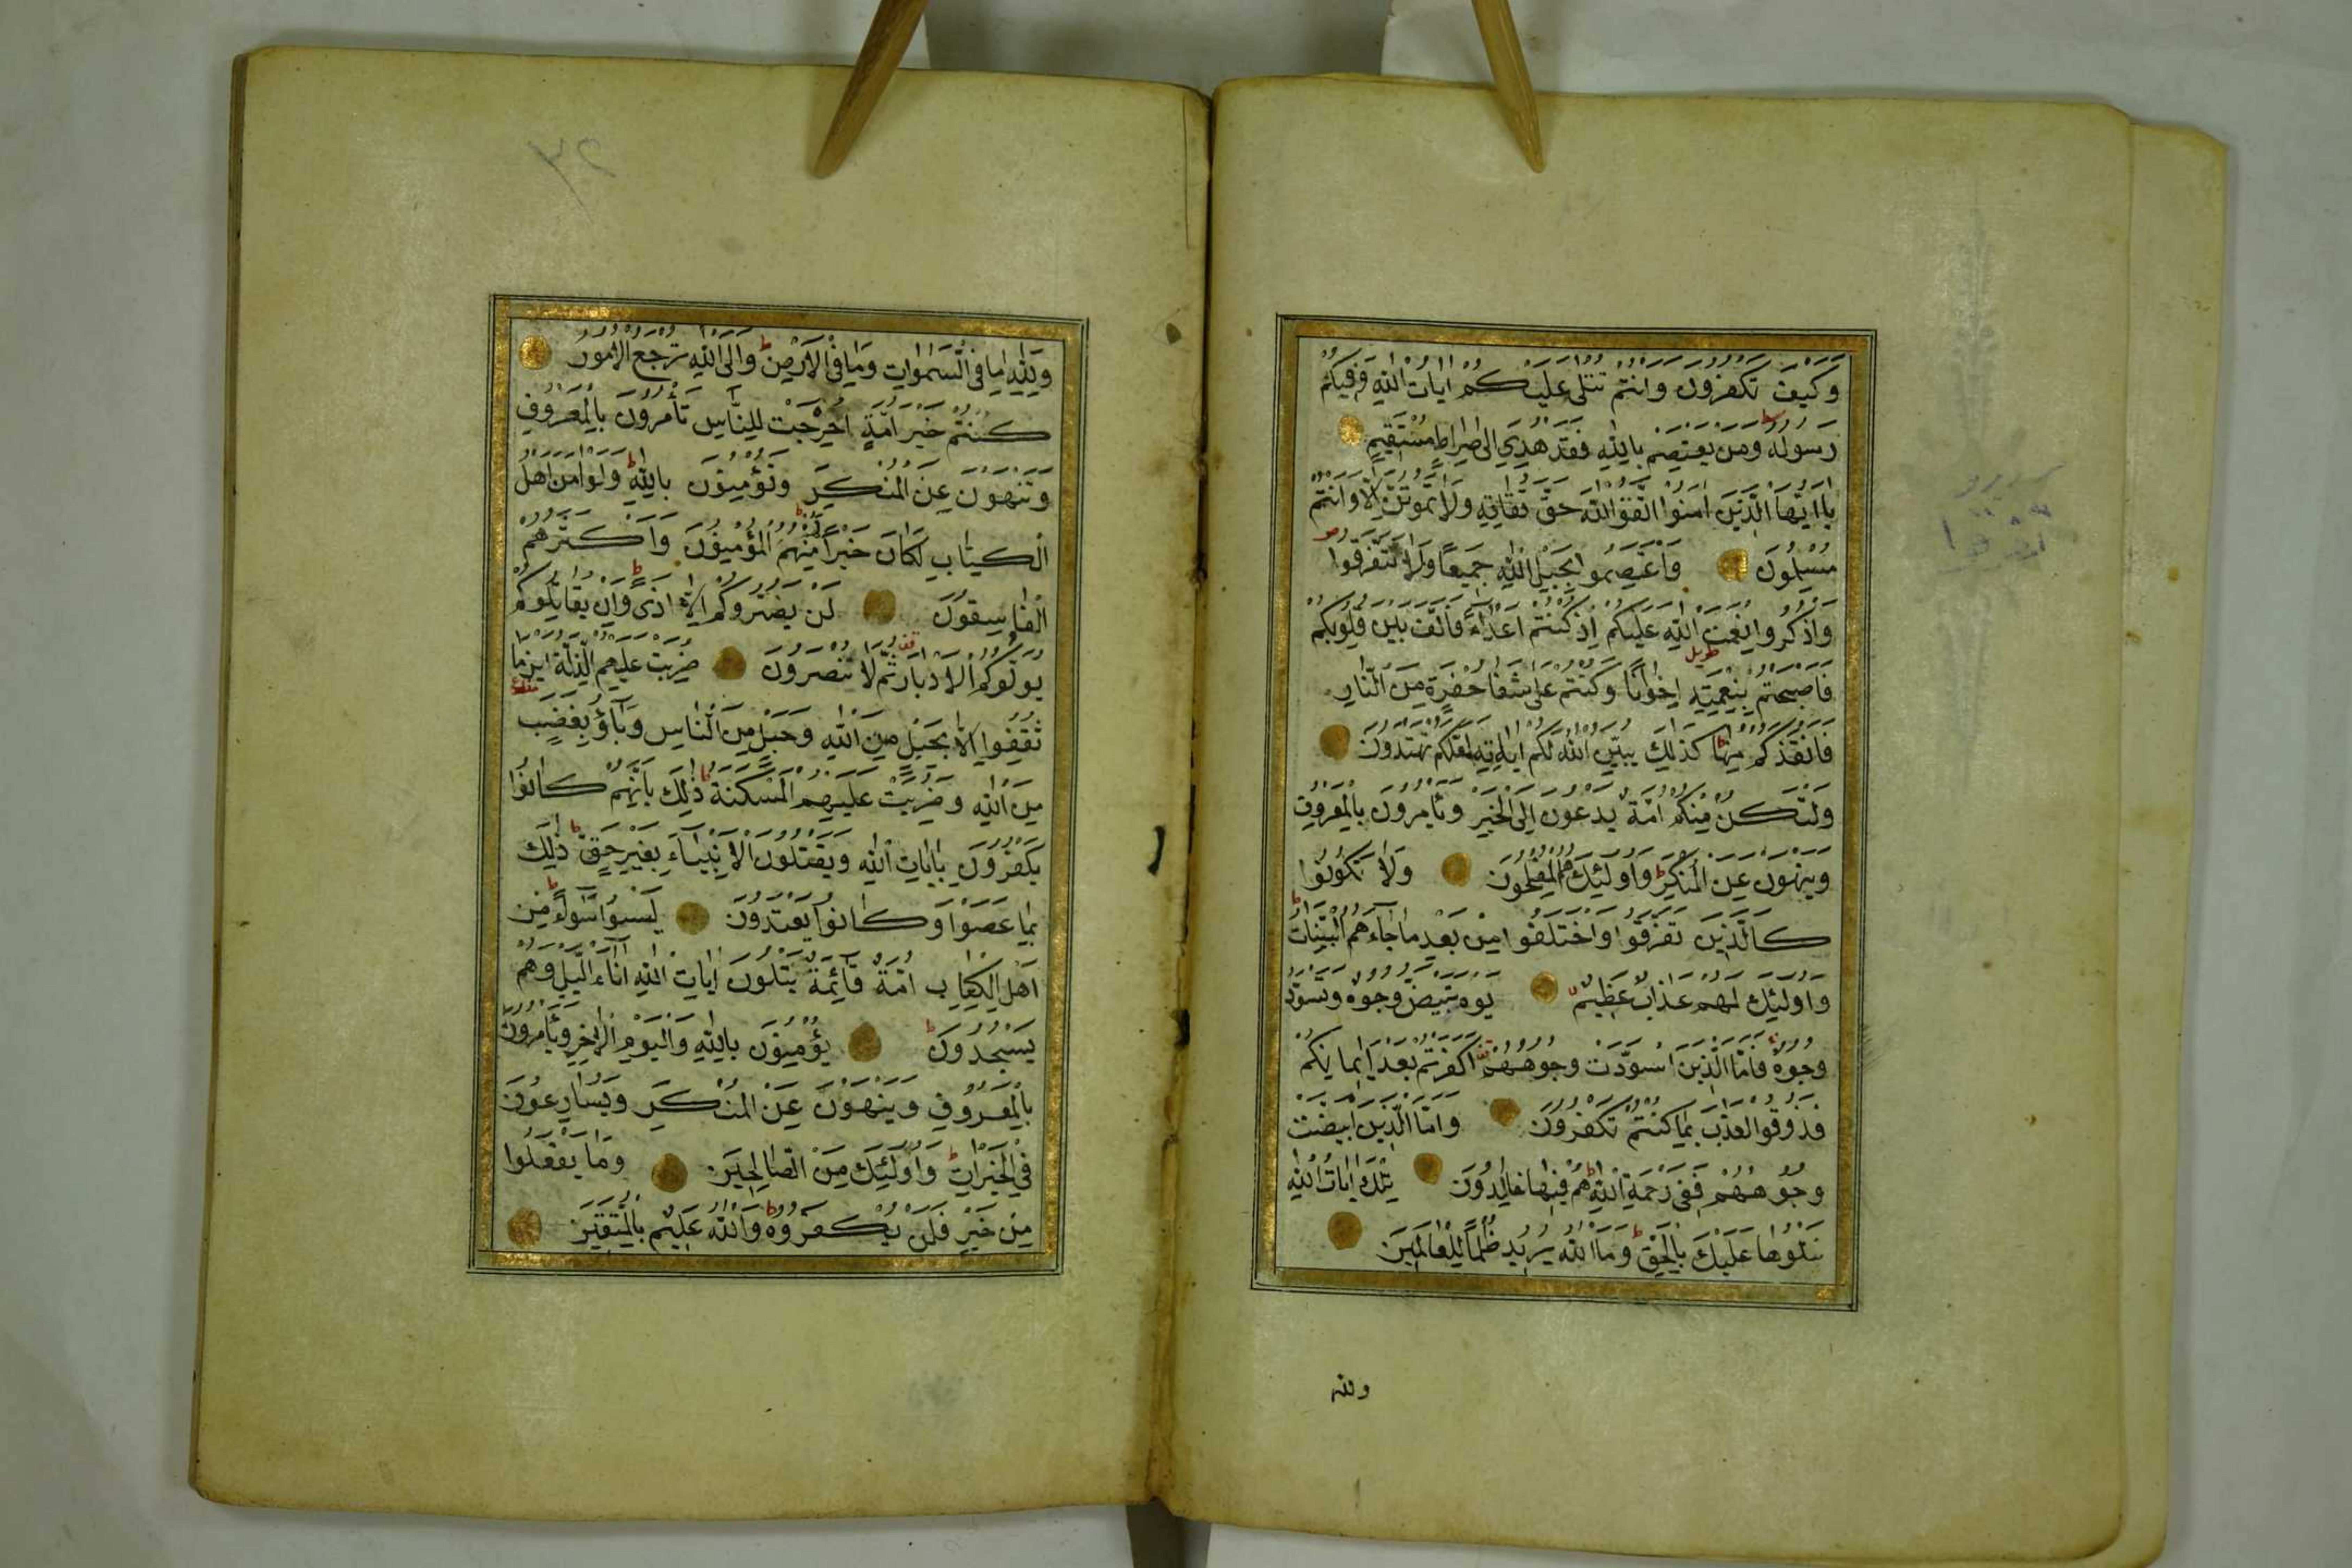 وَكَيْفَ تَكْفُرُونَ وَاَنْتُمْ تُتْلٰى عَلَيْكُمْ اٰيَاتُ اللّٰهِ وَفِيكُمْ
رَسُولُهُ ط وَمَنْ يَعْتَصِمْ بِاللّٰهِ فَقَدْ هُدِيَ اِلٰى صِرَاطٍ مُسْتَقِيمٍ
يَا اَيُّهَا الَّذِينَ اٰمَنُوا اتَّقُوا اللّٰهَ حَقَّ تُقَاتِهِ وَلَا تَمُوتُنَّ اِلَّا وَاَنْتُمْ
مُسْلِمُونَ وَاعْتَصِمُوا بِحَبْلِ اللّٰهِ جَمِيعًا وَلَا تَفَرَّقُوا ص
وَاذْكُرُوا نِعْمَتَ اللّٰهِ عَلَيْكُمْ اِذْ كُنْتُمْ اَعْدَاءً فَاَلَّفَ بَيْنَ قُلُوبِكُمْ
فَاَصْبَحْتُمْ بِنِعْمَتِهِ اِخْوَانًا وَكُنْتُمْ عَلٰى شَفَا حُفْرَةٍ مِنَ النَّارِ
فَاَنْقَذَكُمْ مِنْهَا ط كَذٰلِكَ يُبَيِّنُ اللّٰهُ لَكُمْ اٰيَاتِهِ لَعَلَّكُمْ تَهْتَدُونَ
وَلْتَكُنْ مِنْكُمْ اُمَّةٌ يَدْعُونَ اِلَى الْخَيْرِ وَيَأْمُرُونَ بِالْمَعْرُوفِ
وَيَنْهَوْنَ عَنِ الْمُنْكَرِ ط وَاُولٰئِكَ هُمُ الْمُفْلِحُونَ وَلَا تَكُونُوا
كَالَّذِينَ تَفَرَّقُوا وَاخْتَلَفُوا مِنْ بَعْدِ مَا جَاءَهُمُ الْبَيِّنَاتُ ط
وَاُولٰئِكَ لَهُمْ عَذَابٌ عَظِيمٌ يَوْمَ تَبْيَضُّ وُجُوهٌ وَتَسْوَدُّ
وُجُوهٌ فَاَمَّا الَّذِينَ اسْوَدَّتْ وُجُوهُهُمْ اَكَفَرْتُمْ بَعْدَ اِيمَانِكُمْ
فَذُوقُوا الْعَذَابَ بِمَا كُنْتُمْ تَكْفُرُونَ وَاَمَّا الَّذِينَ ابْيَضَّتْ
وُجُوهُهُمْ فَفِي رَحْمَةِ اللّٰهِ ط هُمْ فِيهَا خَالِدُونَ تِلْكَ اٰيَاتُ اللّٰهِ
نَتْلُوهَا عَلَيْكَ بِالْحَقِّ ط وَمَا اللّٰهُ يُرِيدُ ظُلْمًا لِلْعَالَمِينَ
ولله
٣٢
وَلِلّٰهِ مَا فِي السَّمٰوَاتِ وَمَا فِي الْاَرْضِ ط وَاِلَى اللّٰهِ تُرْجَعُ الْاُمُورُ
كُنْتُمْ خَيْرَ اُمَّةٍ اُخْرِجَتْ لِلنَّاسِ تَأْمُرُونَ بِالْمَعْرُوفِ
وَتَنْهَوْنَ عَنِ الْمُنْكَرِ وَتُؤْمِنُونَ بِاللّٰهِ ط وَلَوْ اٰمَنَ اَهْلُ
الْكِتَابِ لَكَانَ خَيْرًا لَهُمْ ط مِنْهُمُ الْمُؤْمِنُونَ وَاَكْثَرُهُمُ
الْفَاسِقُونَ لَنْ يَضُرُّوكُمْ اِلَّا اَذًى ط وَاِنْ يُقَاتِلُوكُمْ
يُوَلُّوكُمُ الْاَدْبَارَ ثُمَّ لَا يُنْصَرُونَ ضُرِبَتْ عَلَيْهِمُ الذِّلَّةُ اَيْنَ مَا
ثُقِفُوا اِلَّا بِحَبْلٍ مِنَ اللّٰهِ وَحَبْلٍ مِنَ النَّاسِ وَبَاؤُ بِغَضَبٍ
مِنَ اللّٰهِ وَضُرِبَتْ عَلَيْهِمُ الْمَسْكَنَةُ ط ذٰلِكَ بِاَنَّهُمْ كَانُوا
يَكْفُرُونَ بِاٰيَاتِ اللّٰهِ وَيَقْتُلُونَ الْاَنْبِيَاءَ بِغَيْرِ حَقٍّ ط ذٰلِكَ
بِمَا عَصَوْا وَكَانُوا يَعْتَدُونَ لَيْسُوا سَوَاءً ط مِنْ
اَهْلِ الْكِتَابِ اُمَّةٌ قَائِمَةٌ يَتْلُونَ اٰيَاتِ اللّٰهِ اٰنَاءَ الَّيْلِ وَهُمْ
يَسْجُدُونَ ط يُؤْمِنُونَ بِاللّٰهِ وَالْيَوْمِ الْاٰخِرِ وَيَأْمُرُونَ
بِالْمَعْرُوفِ وَيَنْهَوْنَ عَنِ الْمُنْكَرِ وَيُسَارِعُونَ
فِي الْخَيْرَاتِ ط وَاُولٰئِكَ مِنَ الصَّالِحِينَ وَمَا يَفْعَلُوا
مِنْ خَيْرٍ فَلَنْ يُكْفَرُوهُ ط وَاللّٰهُ عَلِيمٌ بِالْمُتَّقِينَ